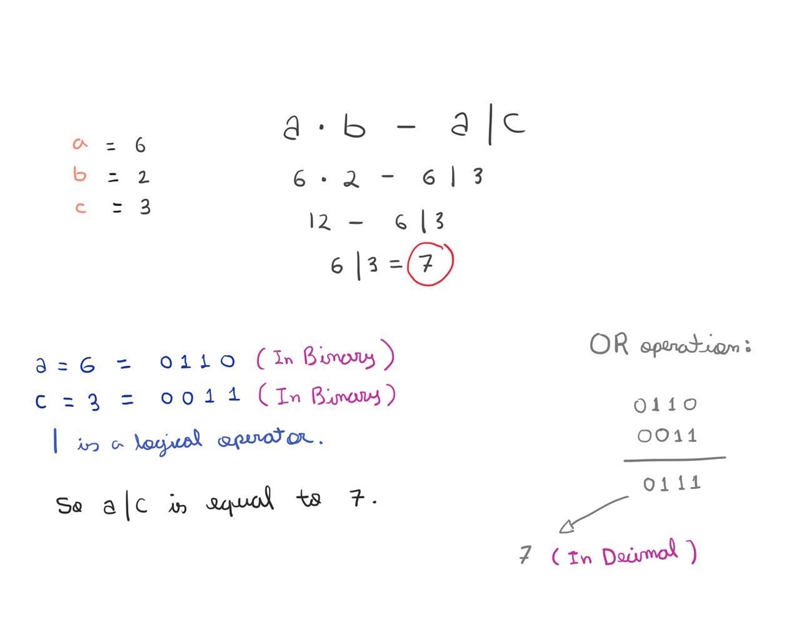 a = 6
b = 2
c = 3
a · b - a|c
6 · 2 - 6|3
12 - 6|3
6|3 = 7
a = 6 = 0110 (In Binary)
c = 3 = 0011 (In Binary)
| is a logical operator.
So a|c is equal to 7.
OR operation:
0110
0011
0111
7 (In Decimal)